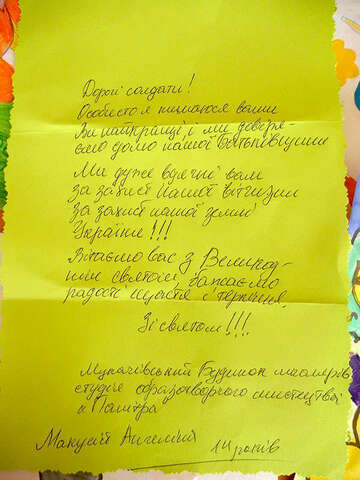 Дорогі солдати!
Особисто я пишаюся вами
Ви найкращі, і ми довіря-
ємо долю нашої Батьківщини
Ми дуже вдячні вам
за захист нашої вітчизни
за захист нашої землі
України!!!
Вітаємо вас з Великод-
нім святом, бажаємо
радості щастя і терпіння.
Зі святом!!!
Мукачівський Будинок школярів
студія образотворчого мистецтва
"Палітра
14 років